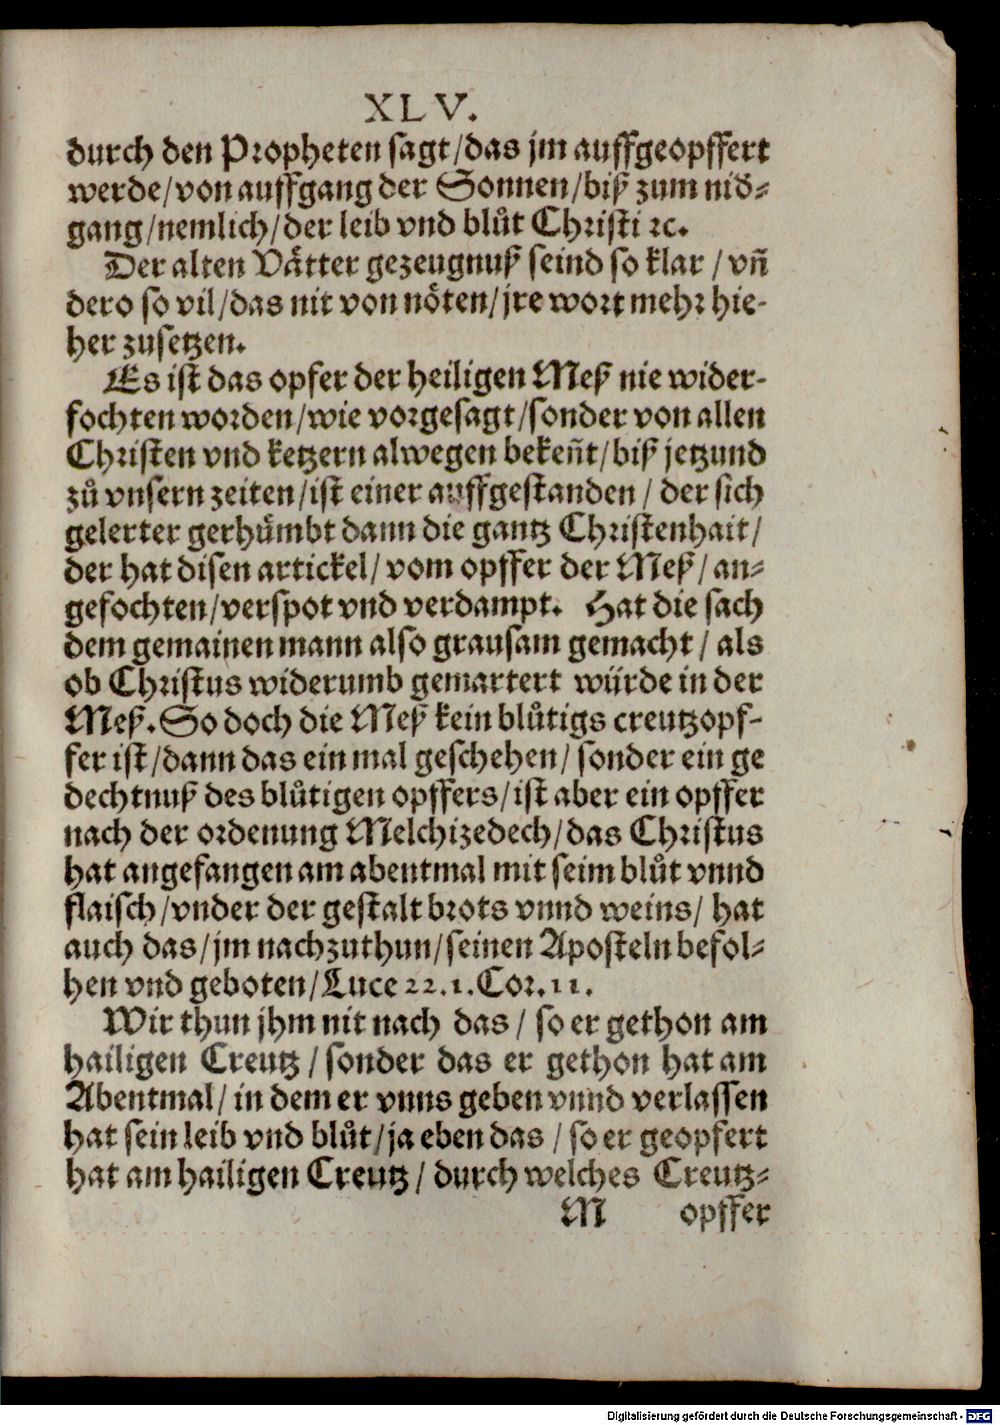 XLV.
durch den Propheten sagt/das jm auffgeopffert
werde/von auffgang der Sonnen/biß zum nid⸗
gang/nemlich/der leib vnd blůt Christi ꝛc.
Der alten Vaͤtter gezeugnuß seind so klar / vñ
dero so vil/das nit von noͤten/jre wort mehr hie-
her zusetzen.
Es ist das opfer der heiligen Meß nie wider-
fochten worden/wie vorgesagt/sonder von allen
Christen vnd ketzern alwegen bekeñt/biß jetzund
zů vnsern zeiten/ist einer auffgestanden / der sich
gelerter gerhuͤmbt dann die gantz Christenhait/
der hat disen artickel/ vom opffer der Meß/ an⸗
gefochten/verspot vnd verdampt. Hat die sach
dem gemainen mann also grausam gemacht / als
ob Christus widerumb gemartert wuͤrde in der
Meß. So doch die Meß kein bluͤtigs creutzopf-
fer ist/dann das ein mal geschehen/ sonder ein ge
dechtnuß des bluͤtigen opffers/ist aber ein opffer
nach der ordenung Melchizedech/das Christus
hat angefangen am abentmal mit seim blůt vnnd
flaisch/vnder der gestalt brots vnnd weins/ hat
auch das/jm nachzuthun/seinen Aposteln befol⸗
hen vnd geboten/Luce 22.1.Cor.11.
Wir thun jhm nit nach das / so er gethon am
hailigen Creutz / sonder das er gethon hat am
Abentmal/ in dem er vnns geben vnnd verlassen
hat sein leib vnd blůt/ja eben das / so er geopfert
hat am hailigen Creutz / durch welches Creutz⸗
M opffer
Digitalisierung gefördert durch die Deutsche Forschungsgemeinschaft - DFG